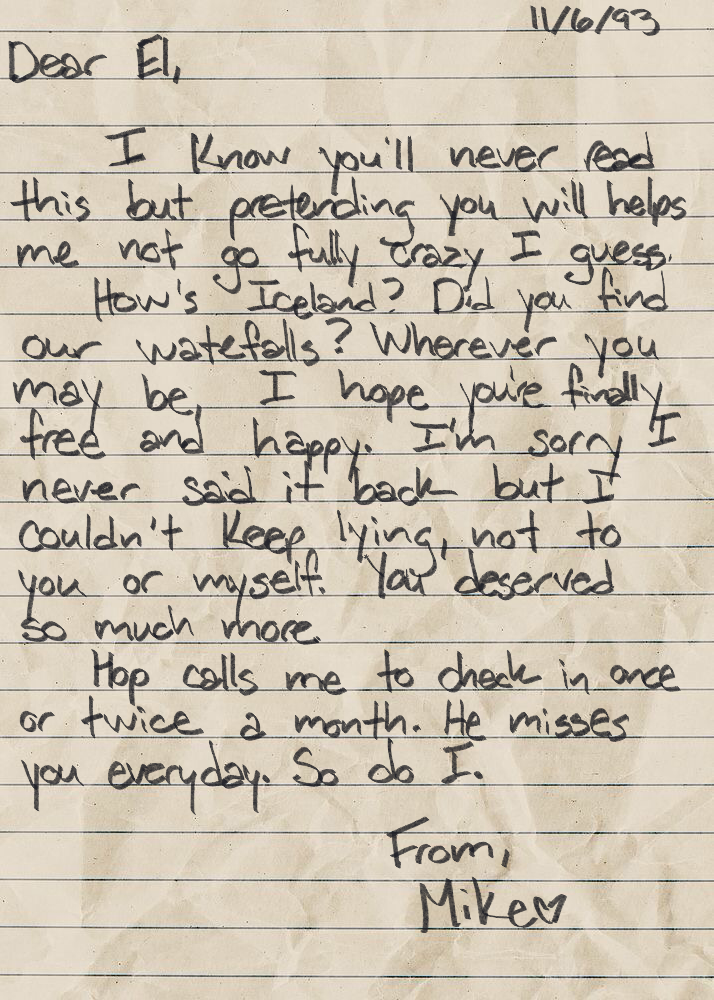 11/6/93
Dear El,
I know you'll never read
this but pretending you will helps
me not go fully crazy I guess.
How's Iceland? Did you find
our watefalls? Wherever you
may be, I hope you're finally
free and happy. I'm sorry I
never said it back but I
couldn't keep lying, not to
you or myself. You deserved
so much more.
Hop calls me to check in once
or twice a month. He misses
you everyday. So do I.
From,
Mike♡